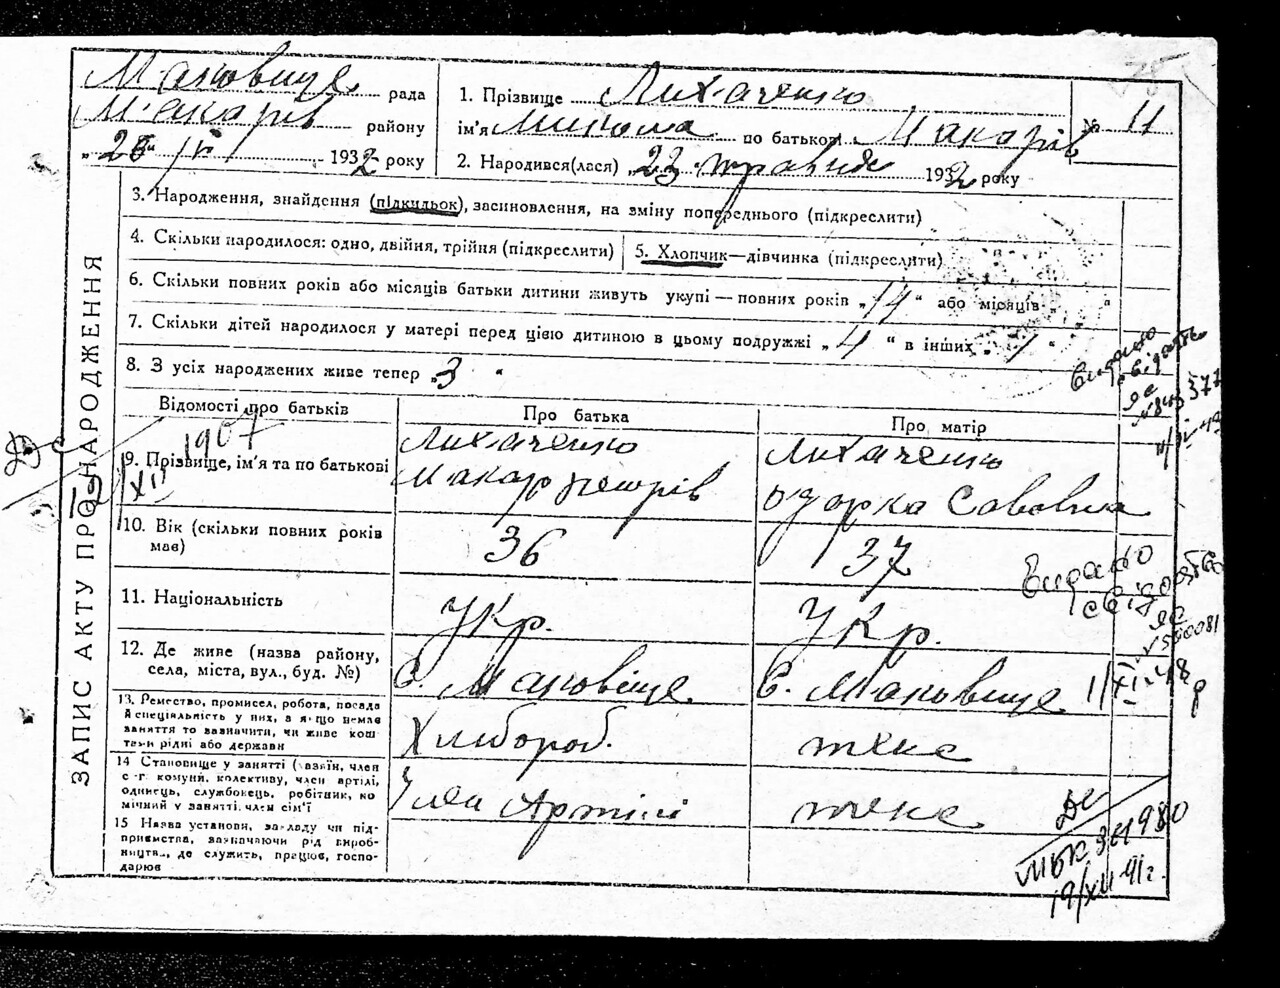 Маковище рада
Макарів району
"28" 1932 року
1. Прізвище Лихаченко
ім'я Микола по батькові Макарів
2. Народився(лася) "23" травня 1932 року
№ 11
ЗАПИС АКТУ ПРО НАРОДЖЕННЯ
3. Народження, знайдення (підкидьок), засиновлення, на зміну попереднього (підкреслити)
4. Скільки народилося: одно, двійня, трійня (підкреслити)
5. Хлопчик—дівчинка (підкреслити)
6. Скільки повних років або місяців батьки дитини живуть укупі — повних років "14" або місяців " "
7. Скільки дітей народилося у матері перед цією дитиною в цьому подружжі "4" в інших "1"
8. З усіх народжених живе тепер "3"
Відомості про батьків
Про батька
Про матір
1907
XII
9. Прізвище, ім'я та по батькові
Лихаченко
Макар
Лихаченко
Одарка Савовна
10. Вік (скільки повних років має)
36
37
11. Національність
Укр.
Укр.
12. Де живе (назва району,
села, міста, вул., буд. №)
С. Маковище
С. Маковище
13. Ремество, промисел, робота, посада
й спеціяльність у них, а якщо немає
заняття то зазначити, чи живе кош
тами рідні або держави
Хлібороб.
теке
14 Становище у занятті (хазяїн, член
с-г комуни, колективу, член артілі,
одинець, службовець, робітник, по
мічний у занятті член сім'ї
Член Артілі
теке
15 Назва установи, закладу чи під-
приємства, зазначаючи рід вироб-
ництва, де служить, працює, госпо-
дарює
Видано
свідотство
за
Видано
свідоцтво
за
№ 500081
19/XII 41г.